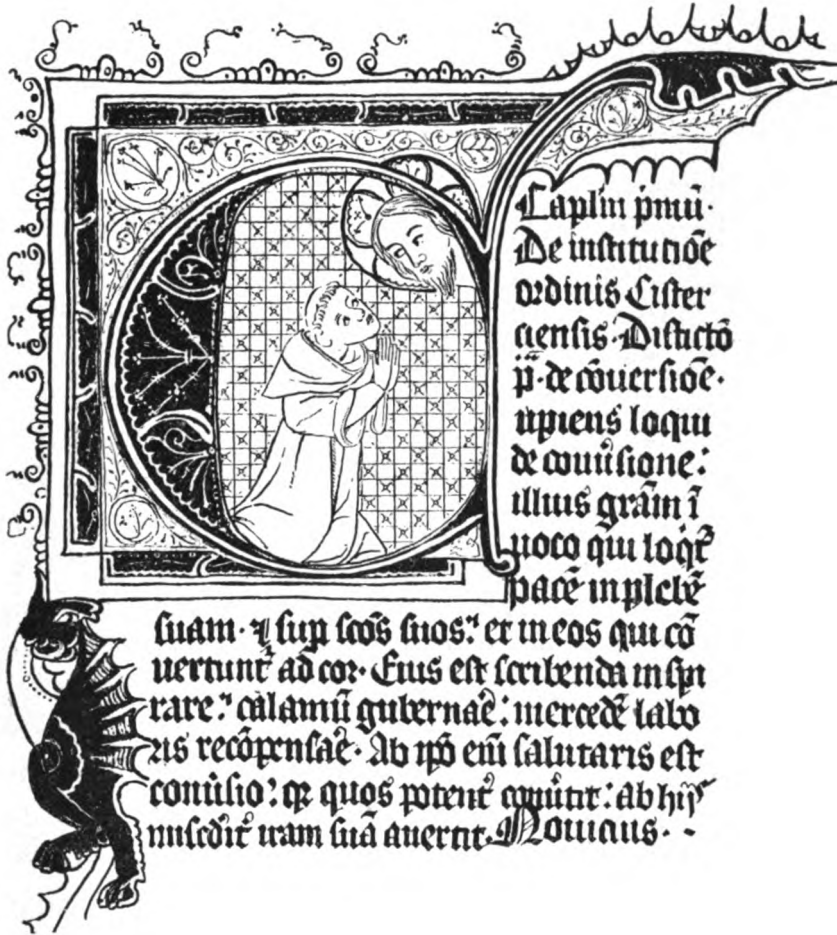 Caplm pmū·
De institutiōe
ordinis Cister
ciensis· Distictō
p̄·de cōuersiōe·
upiens loqui
de conūsione:
illius grām ī
uoco qui loqt̄
pacē in plebē
suam· ⁊ sup scōs suos: et in eos qui cō
uertunt̄ ad cor· Eius est scribenda inspi
rare: calamū gubernar̄: mercedē labo
ris recōpensar̄· Ab ip̄o eni salutaris est
conūsio: qꝛ quos potent̄ conūtit: ab hijs
misc̄dit̄ iram suā auertit· Nouicius·-